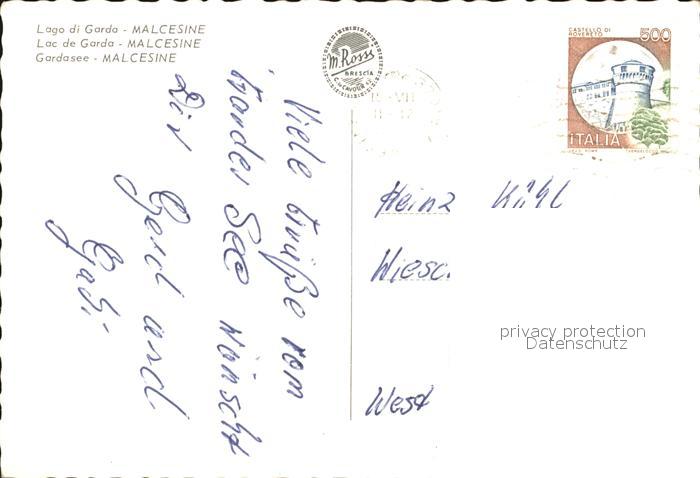 Lago di Garda - MALCESINE
Lac de Garda - MALCESINE
Gardasee - MALCESINE
m. Rossi
BRESCIA
CASTELLO DI
ROVERETO
500
ITALIA
Viele Grüße vom
Garder See wünscht
Dir Gerd und
Gabi
Heinz Kühl
Wiesc.
West
privacy protection
Datenschutz